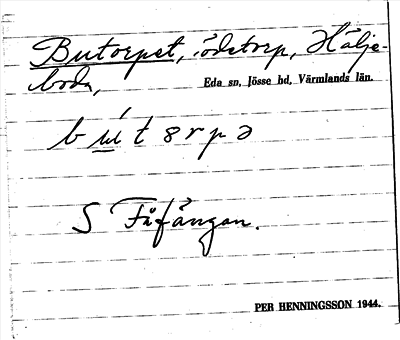 Butorpet, ödetorp, Hälje-
boda,
Eda sn, Jösse hd, Värmlands län.
b ú t ɘ r p ə
S Fåfängan.
PER HENNINGSSON 1944.